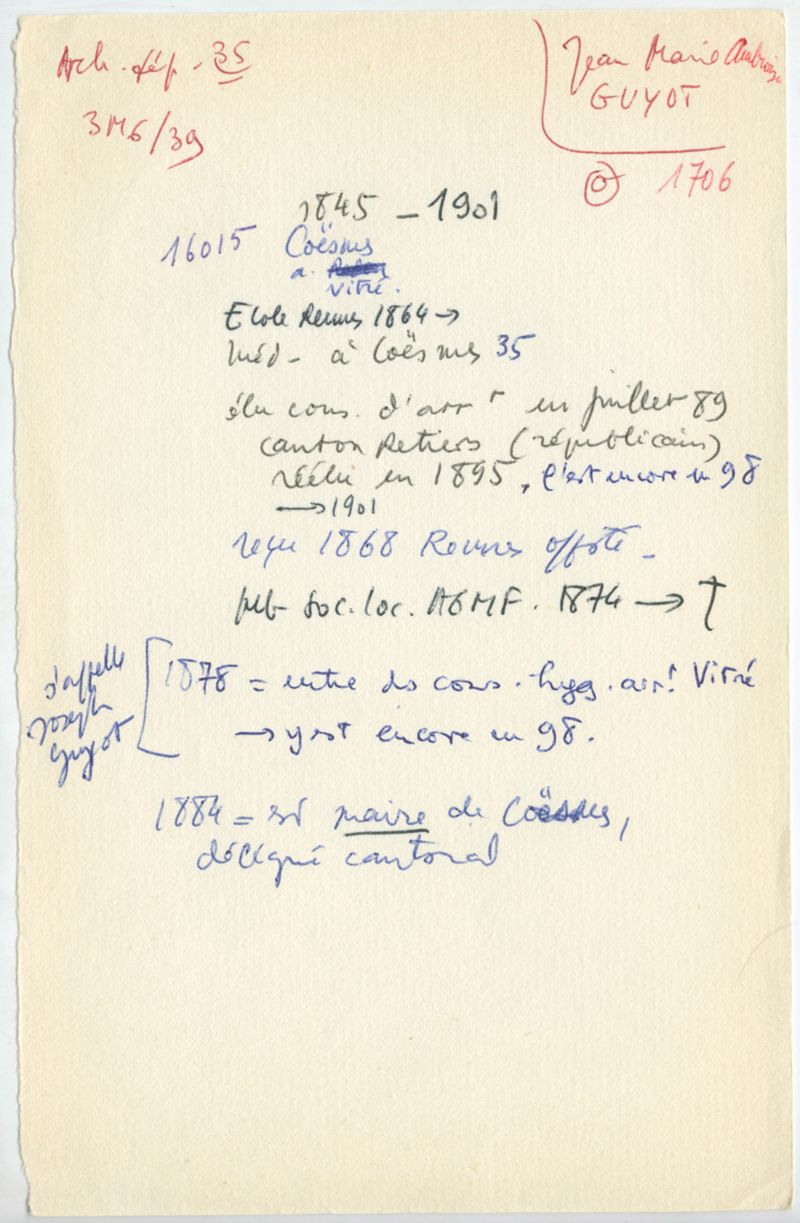 Arch. dép. 35
3M6/39
Jean Marie Ambroise
GUYOT
1706
1845 - 1901
16015 Coësmes
a.
Vitré.
Ecole Rennes 1864 →
Méd - à Coësmes 35
élu cons. d'arrt en juillet 89
canton Retiers (républicain)
réélu en 1895, l'est encore en 98
→ 1901
reçu 1868 Rennes off. sté -
soc. loc. AGMF. 1874 → †
s'appelle
Joseph
Guyot
1878 = entre ds cons. hyg. arrt Vitré
→ y est encore en 98.
1884 = est maire de Coësmes,
délégué cantonal